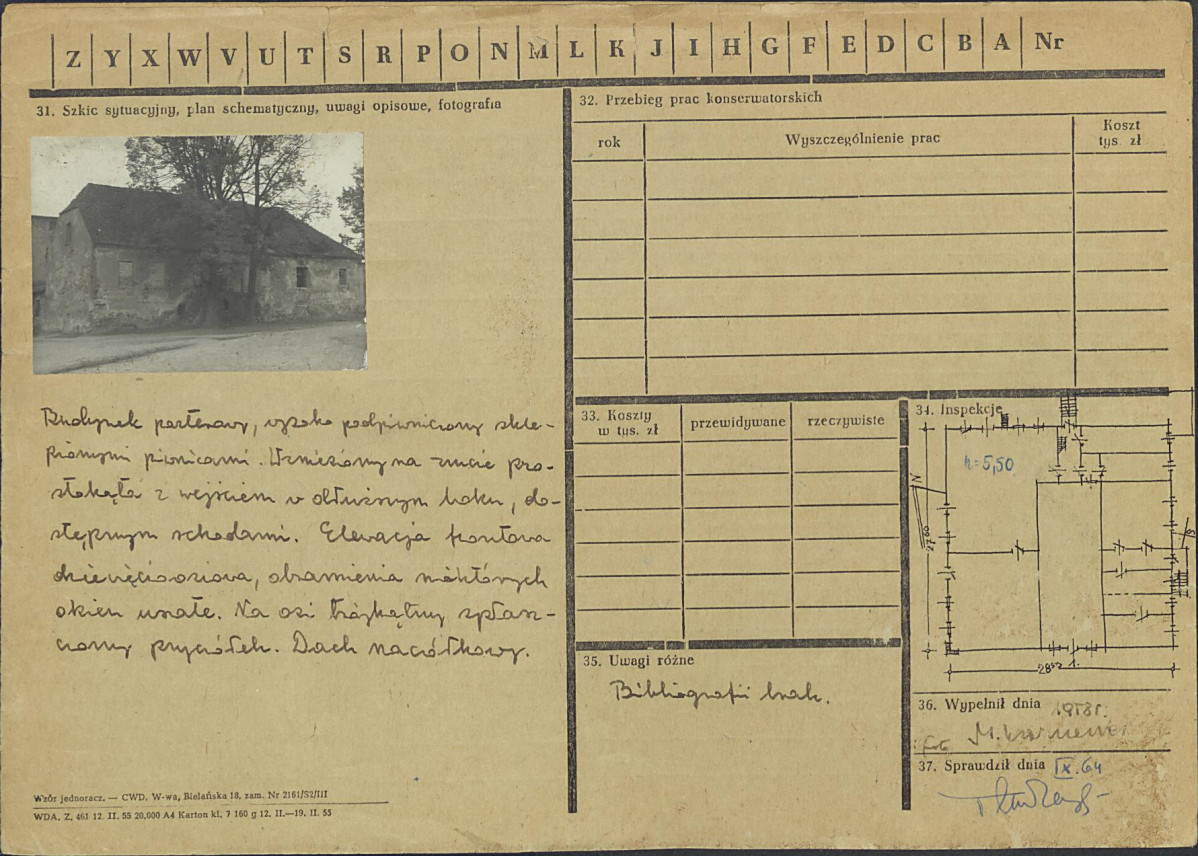 Z Y X W V U T S R P O N M L K J I H G F E D C B A Nr
31. Szkic sytuacyjny, plan schematyczny, uwagi opisowe, fotografia
Budynek parterowy, wysoko podpiwniczony skle-
pionymi piwnicami. Wzniesiony na rzucie pro-
stokąta z wejściem w dłuższym boku, do-
stępnym schodami. Elewacja frontowa
dziewięcioosiowa, obramienia niektórych
okien uszate. Na osi trójkątny spłasz-
czony przyczółek. Dach naczółkowy.
Wzór jednoracz. — CWD, W-wa, Bielańska 18, zam. Nr 2161/S2/III
WDA. Z. 461 12. II. 55 20.000 A4 Karton kl. 7 160 g 12. II.—19. II. 55
32. Przebieg prac konserwatorskich
rok
Wyszczególnienie prac
Koszt
tys. zł
33. Koszty
w tys. zł
przewidywane
rzeczywiste
34. Inspekcje
h=5,50
N
35. Uwagi różne
Bibliografii brak.
36. Wypełnił dnia 1958r.
fot.
37. Sprawdził dnia IX.64